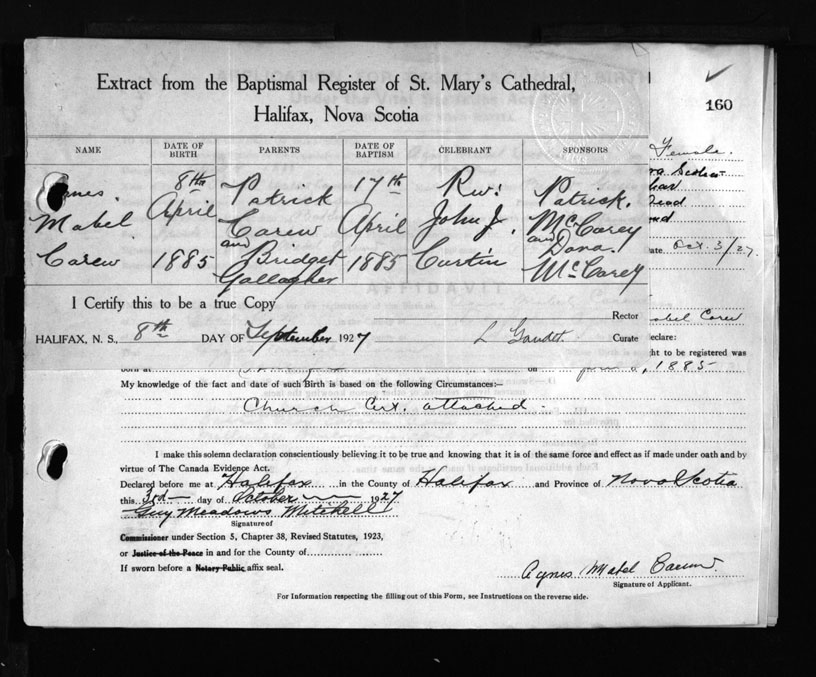 Extract from the Baptismal Register of St. Mary's Cathedral,
Halifax, Nova Scotia
160
NAME DATE OF BIRTH PARENTS DATE OF BAPTISM CELEBRANT SPONSORS
8th Patrick 17th Rev: Patrick.
Mabel April Carew April John J. McCarey
and and
Carew 1885 Bridget 1885 Curtin Dona.
Gallagher McCarey
Female.
Dead
Date Oct. 3/27.
I Certify this to be a true Copy
Rector
HALIFAX, N. S., 8th DAY OF September 1927 L Gaudet. Curate
AFFIDAVIT
Mabel Carew
declare:
ght to be registered was
born at on 1885
My knowledge of the fact and date of such Birth is based on the following Circumstances:—
Church Cert. attached.
I make this solemn declaration conscientiously believing it to be true and knowing that it is of the same force and effect as if made under oath and by
virtue of The Canada Evidence Act.
Declared before me at Halifax in the County of Halifax and Province of Nova Scotia
this 3rd day of October 1927
Guy Meadows Mitchell
Signature of
Commissioner under Section 5, Chapter 38, Revised Statutes, 1923,
or Justice of the Peace in and for the County of
If sworn before a Notary Public affix seal.
Agnes Mabel Carew.
Signature of Applicant.
For Information respecting the filling out of this Form, see Instructions on the reverse side.